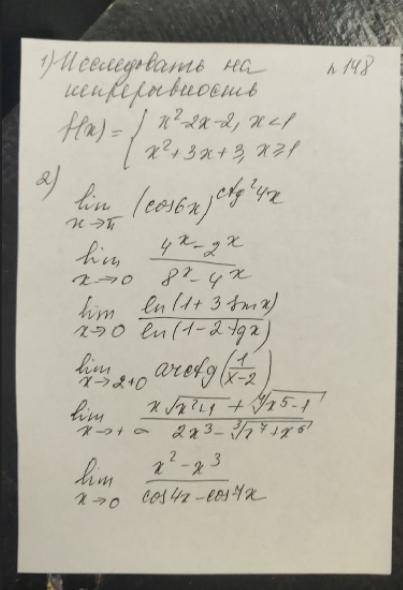 1) Исследовать на
непрерывность
л 148
f(x) = { x²-2x-2, x<1
x²+3x+3, x⩾1
2)
lim x→π (cos6x)^ctg²4x
lim x→0 (4^x - 2^x) / (8^x - 4^x)
lim x→0 ln(1+3sinx) / ln(1-2tgx)
lim x→2+0 arctg(1/(x-2))
lim x→+∞ (x√(x²+1) + ∜(x⁵-1)) / (2x³ - ∛(x⁷+x⁵))
lim x→0 (x² - x³) / (cos4x - cos7x)